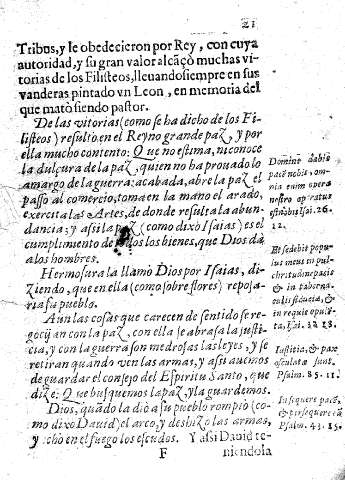 21
Tribus, y le obedecieron por Rey, con cuya
autoridad, y su gran valor alcãçò muchas vi-
torias de los Filisteos, lleuando siempre en sus
vanderas pintado vn Leon, en memoria del
que matò siendo pastor.
De las vitorias (como se ha dicho de los Fi-
listeos) resultò en el Reyno grande paz, y por
ella mucho contento: Que no estima, ni conoce
la dulçura de la paz, quien no ha prouado lo
amargo de la guerra: acabada, abre la paz el
passo al comercio, toma en la mano el arado,
exercita las Artes, de donde resulta la abun-
dancia; y assi la paz (como dixo Isaias) es el
cumplimiento de todos los bienes, que Dios dà
a los hombres.
Hermosura la llamò Dios por Isaias, di-
ziendo, que en ella (como sobre flores) reposa-
ria su pueblo.
Aun las cosas que carecen de sentido se re-
gozijan con la paz, con ella se abrasa la justi-
cia, y con la guerra son medrosas las leyes, y se
retiran quando ven las armas, y assi auemos
de guardar el consejo del Espiritu Santo, que
dize: Que busquemos la paz, y la guardemos.
Dios, quãdo la diò a su pueblo rompiò (co-
mo dixo Dauid) el arco, y deshizo las armas,
y echò en el fuego los escudos. Y assi Dauid te-
F niendola
Domine dabis
pacẽ nobis, om-
nia enim opera
nostra operatus
es nobis Isai. 26.
12.
Et sedebit popu-
lus meus in pul-
chritudine pacis
& in taberna-
culis fiduciæ, &
in requie opulẽ-
ta, Isai. 32 18.
Iustitia, & pax
osculatæ sunt.
Psalm. 85. 11.
Inquire pacẽ,
& persequere eã
Psalm. 43. 15.